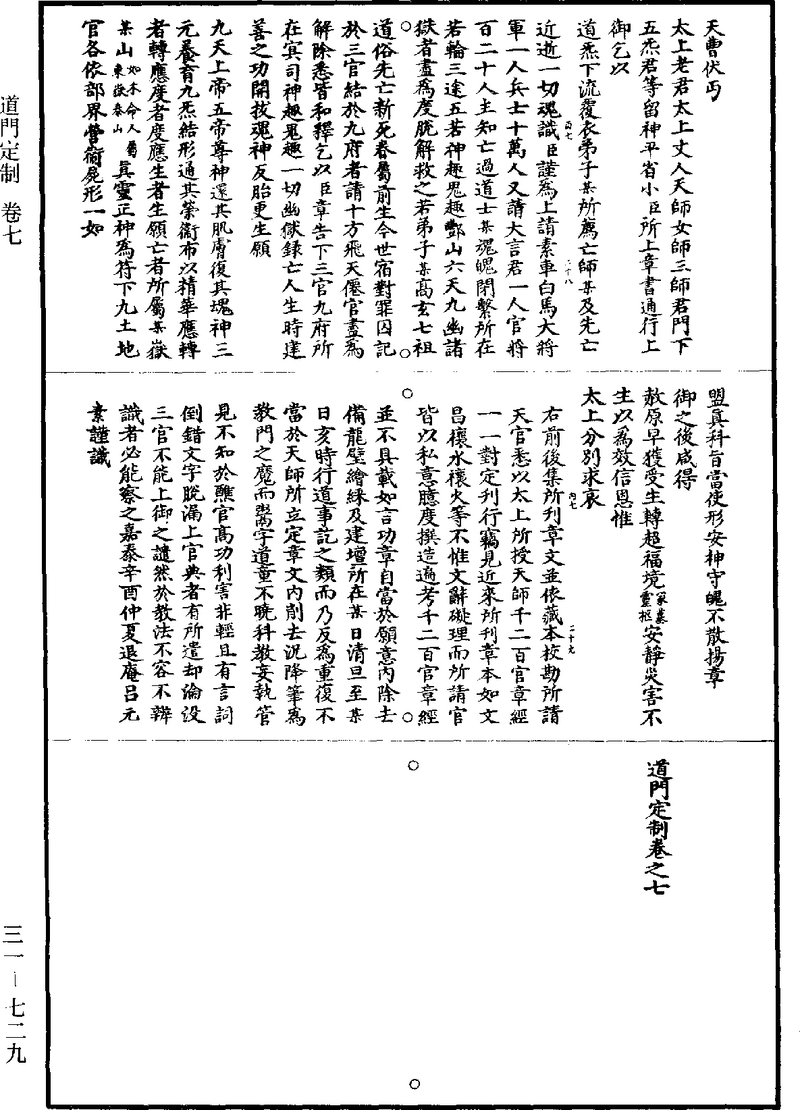 天曹伏丐
太上老君太上丈人天師女師三師君門下
五炁君等留神平省小臣所上章書通行上
御乞以
道炁下流覆衣弟子某所薦亡師某及先亡
近逝一切魂識臣謹為上請素車白馬大將
軍一人兵士十萬人又請大言君一人官將
百二十人主知亡過道士某魂魄閉繫所在
若輪三途五苦神趣鬼趣酆山六天九幽諸
獄者盡為度脫解救之若弟子某高玄七祖
道俗先亡新死眷屬前生今世宿對罪因記
於三官結於九府者請十方飛天僊官盡為
解除悉皆和釋乞以臣章告下三官九府所
在冥司神趣鬼趣一切幽獄錄亡人生時建
善之功開拔魂神反胎更生願
九天上帝五帝尊神還其肌膚復其魂神三
元養育九炁結形通其榮衛布以精華應轉
者轉應度者度應生者生願亡者所屬某嶽
某山如木命人屬東嶽泰山真靈正神為符下九土地
官各依部界營衛屍形一如
盟真科旨當使形安神守魄不散揚章
御之後咸得
敖原早獲受生轉超福境冢墓靈柩安靜災害不
生以為效信恩惟
太上分別求哀
右前後集所刊章文並依藏本校勘所請
天官悉以太上所授天師千二百官章經
一一對定刊行竊見近來所刊章本如文
昌禳水禳火等不惟文辭礙理而所請官
皆以私意臆度撰造遍考千二百官章經
並不具載如言功章自當於願意內除去
備龍璧繒綵及建壇所在某日清旦至某
日亥時行道事訖之類而乃反為重復不
當於天師所立定章文內削去況降筆為
教門之魔而鬻字道童不曉科教妄執管
見不知於醮官高功利害非輕且有言詞
倒錯文字脫漏上官典者有所遣却論設
三官不能上御之譴然於教法不容不辨
識者必能察之嘉泰辛酉仲夏退庵呂元
素謹識
道門定制卷之七
道門定制　卷七
三一－七二九